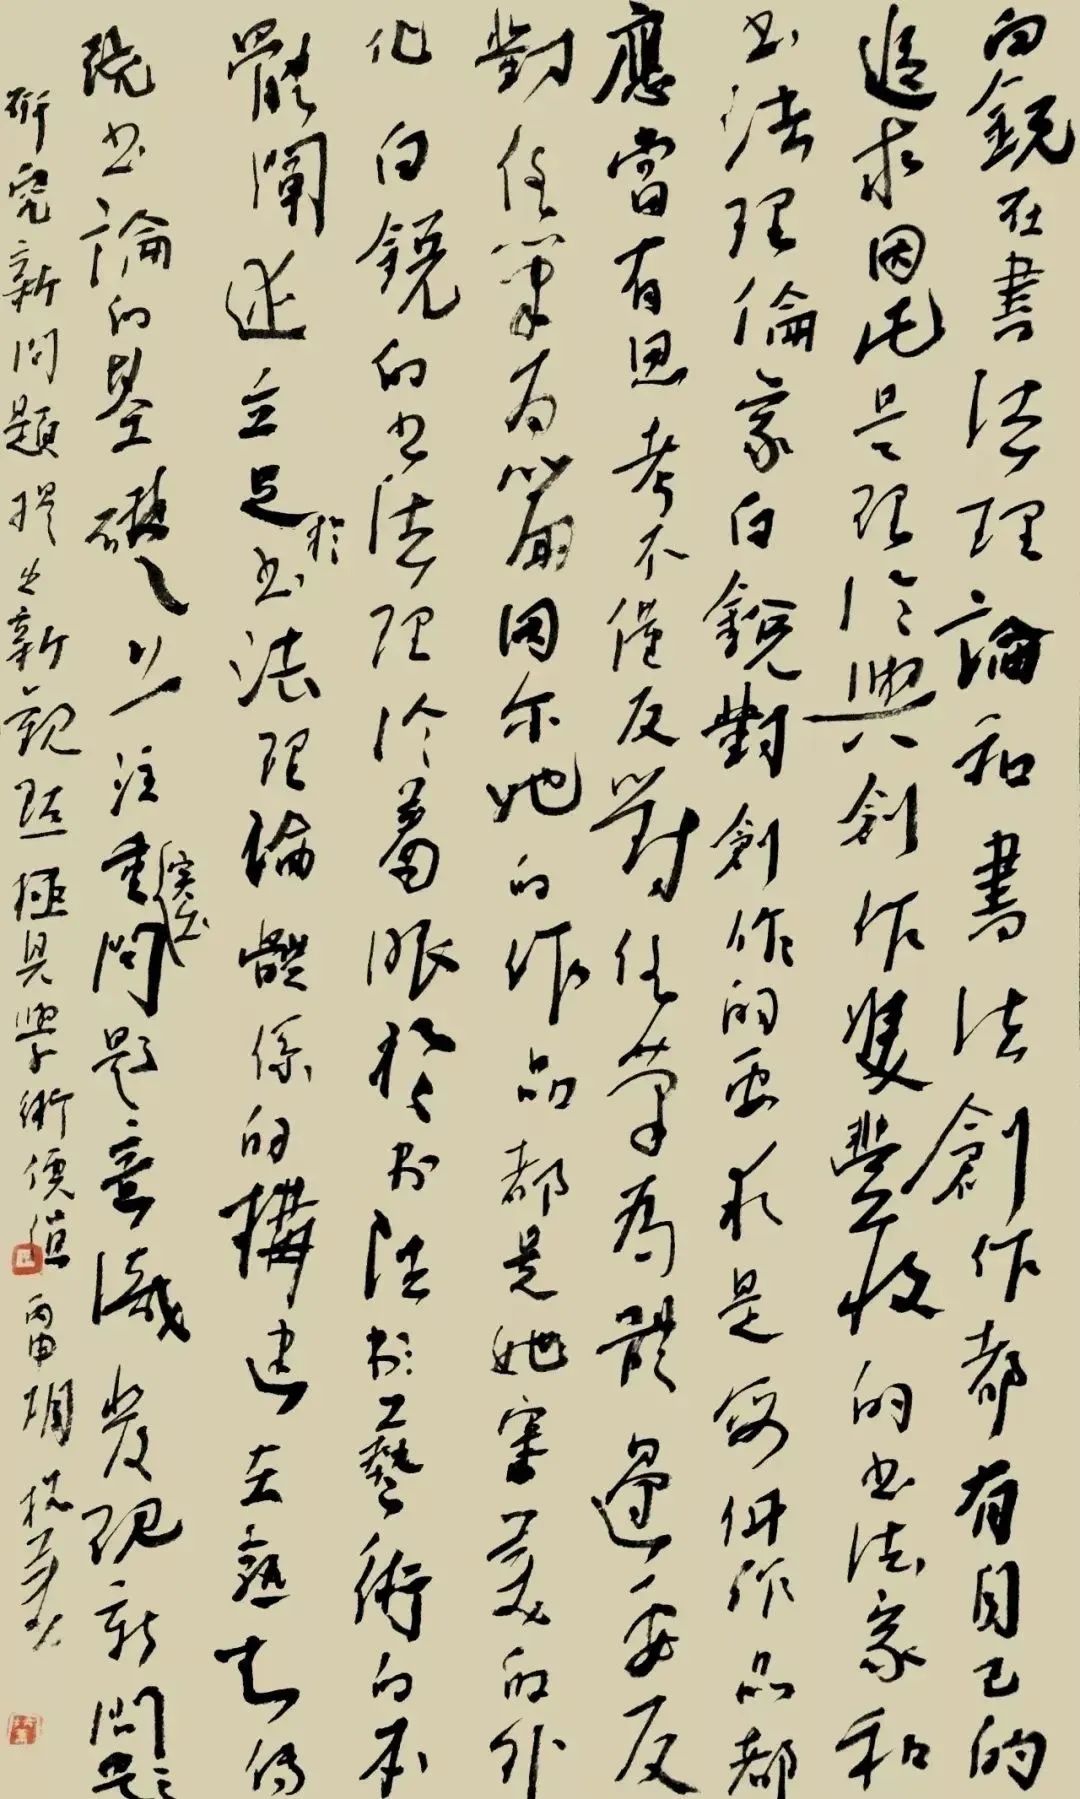 白銳在書法理論和書法創作都有自己的
追求因此是理論與創作雙豐收的书法家和
书法理倫家白銳對創作的要求是每件作品都
應當有思考不僅反對任筆為體還要反
對任筆為篇因尔她的作品都是她審美的外
化白銳的书法理論着眼於书法於藝術的本
體闡述立足於书法理論體係的構建在熟知傳
統书論的基礎之上注重問題意識發現新問題
研究新問題提出新觀點極具學術價值 雷明